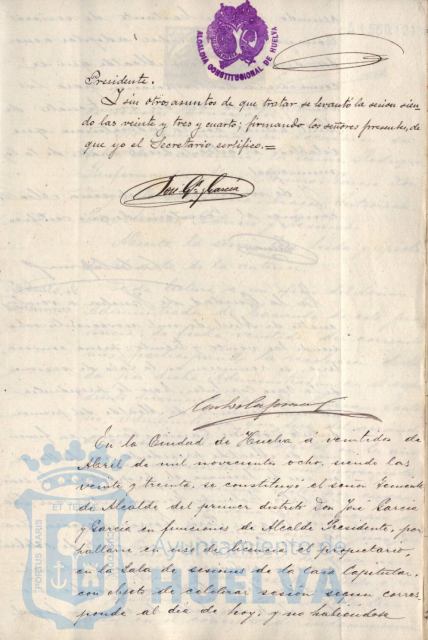 ALCALDIA CONSTITUCIONAL DE HUELVA
Presidente.
Y sin otros asuntos de que tratar se levantó la sesion sien-
do las veinte y tres y cuarto; firmando los señores presentes, de
que yo el Secretario certifico.=
José Gª García
En la Ciudad de Huelva á veintidos de
Abril de mil novecientos ocho, siendo las
veinte y treinta, se constituyó el señor Teniente
de Alcalde del primer distrito Don José Garcia
y Garcia en funciones de Alcalde Presidente, por
hallarse en uso de licencia el propietario,
en la Sala de sesiones de la Casa Capitular,
con objeto de celebrar sesión segun corres-
ponde al dia de hoy, y no habiéndose
PORTUS MARIS
Ayuntamiento de
HUELVA